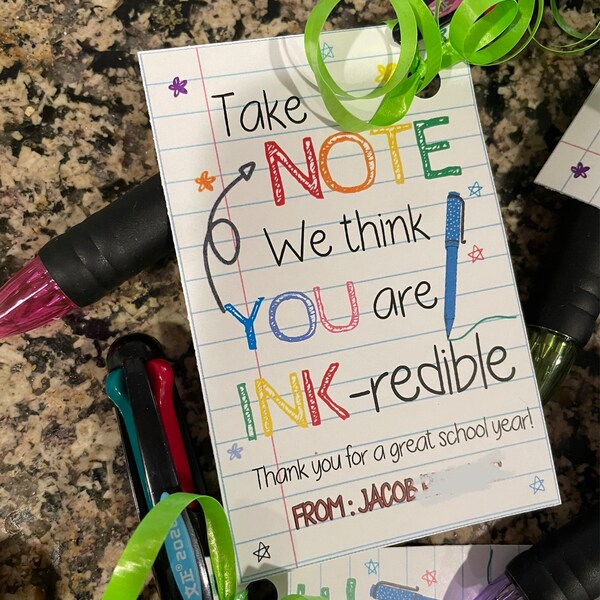 Take
NOTE
We think
YOU are
INK-redible
Thank you for a great school year!
FROM: JACOB